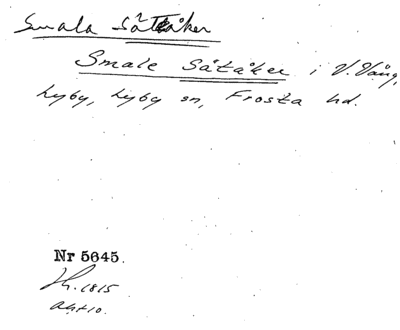 Smala såtåker
Smale Såtåker i V. Vång,
Lyby, Lyby sn, Frosta hd.
Nr 5645.
1815
akt 10.